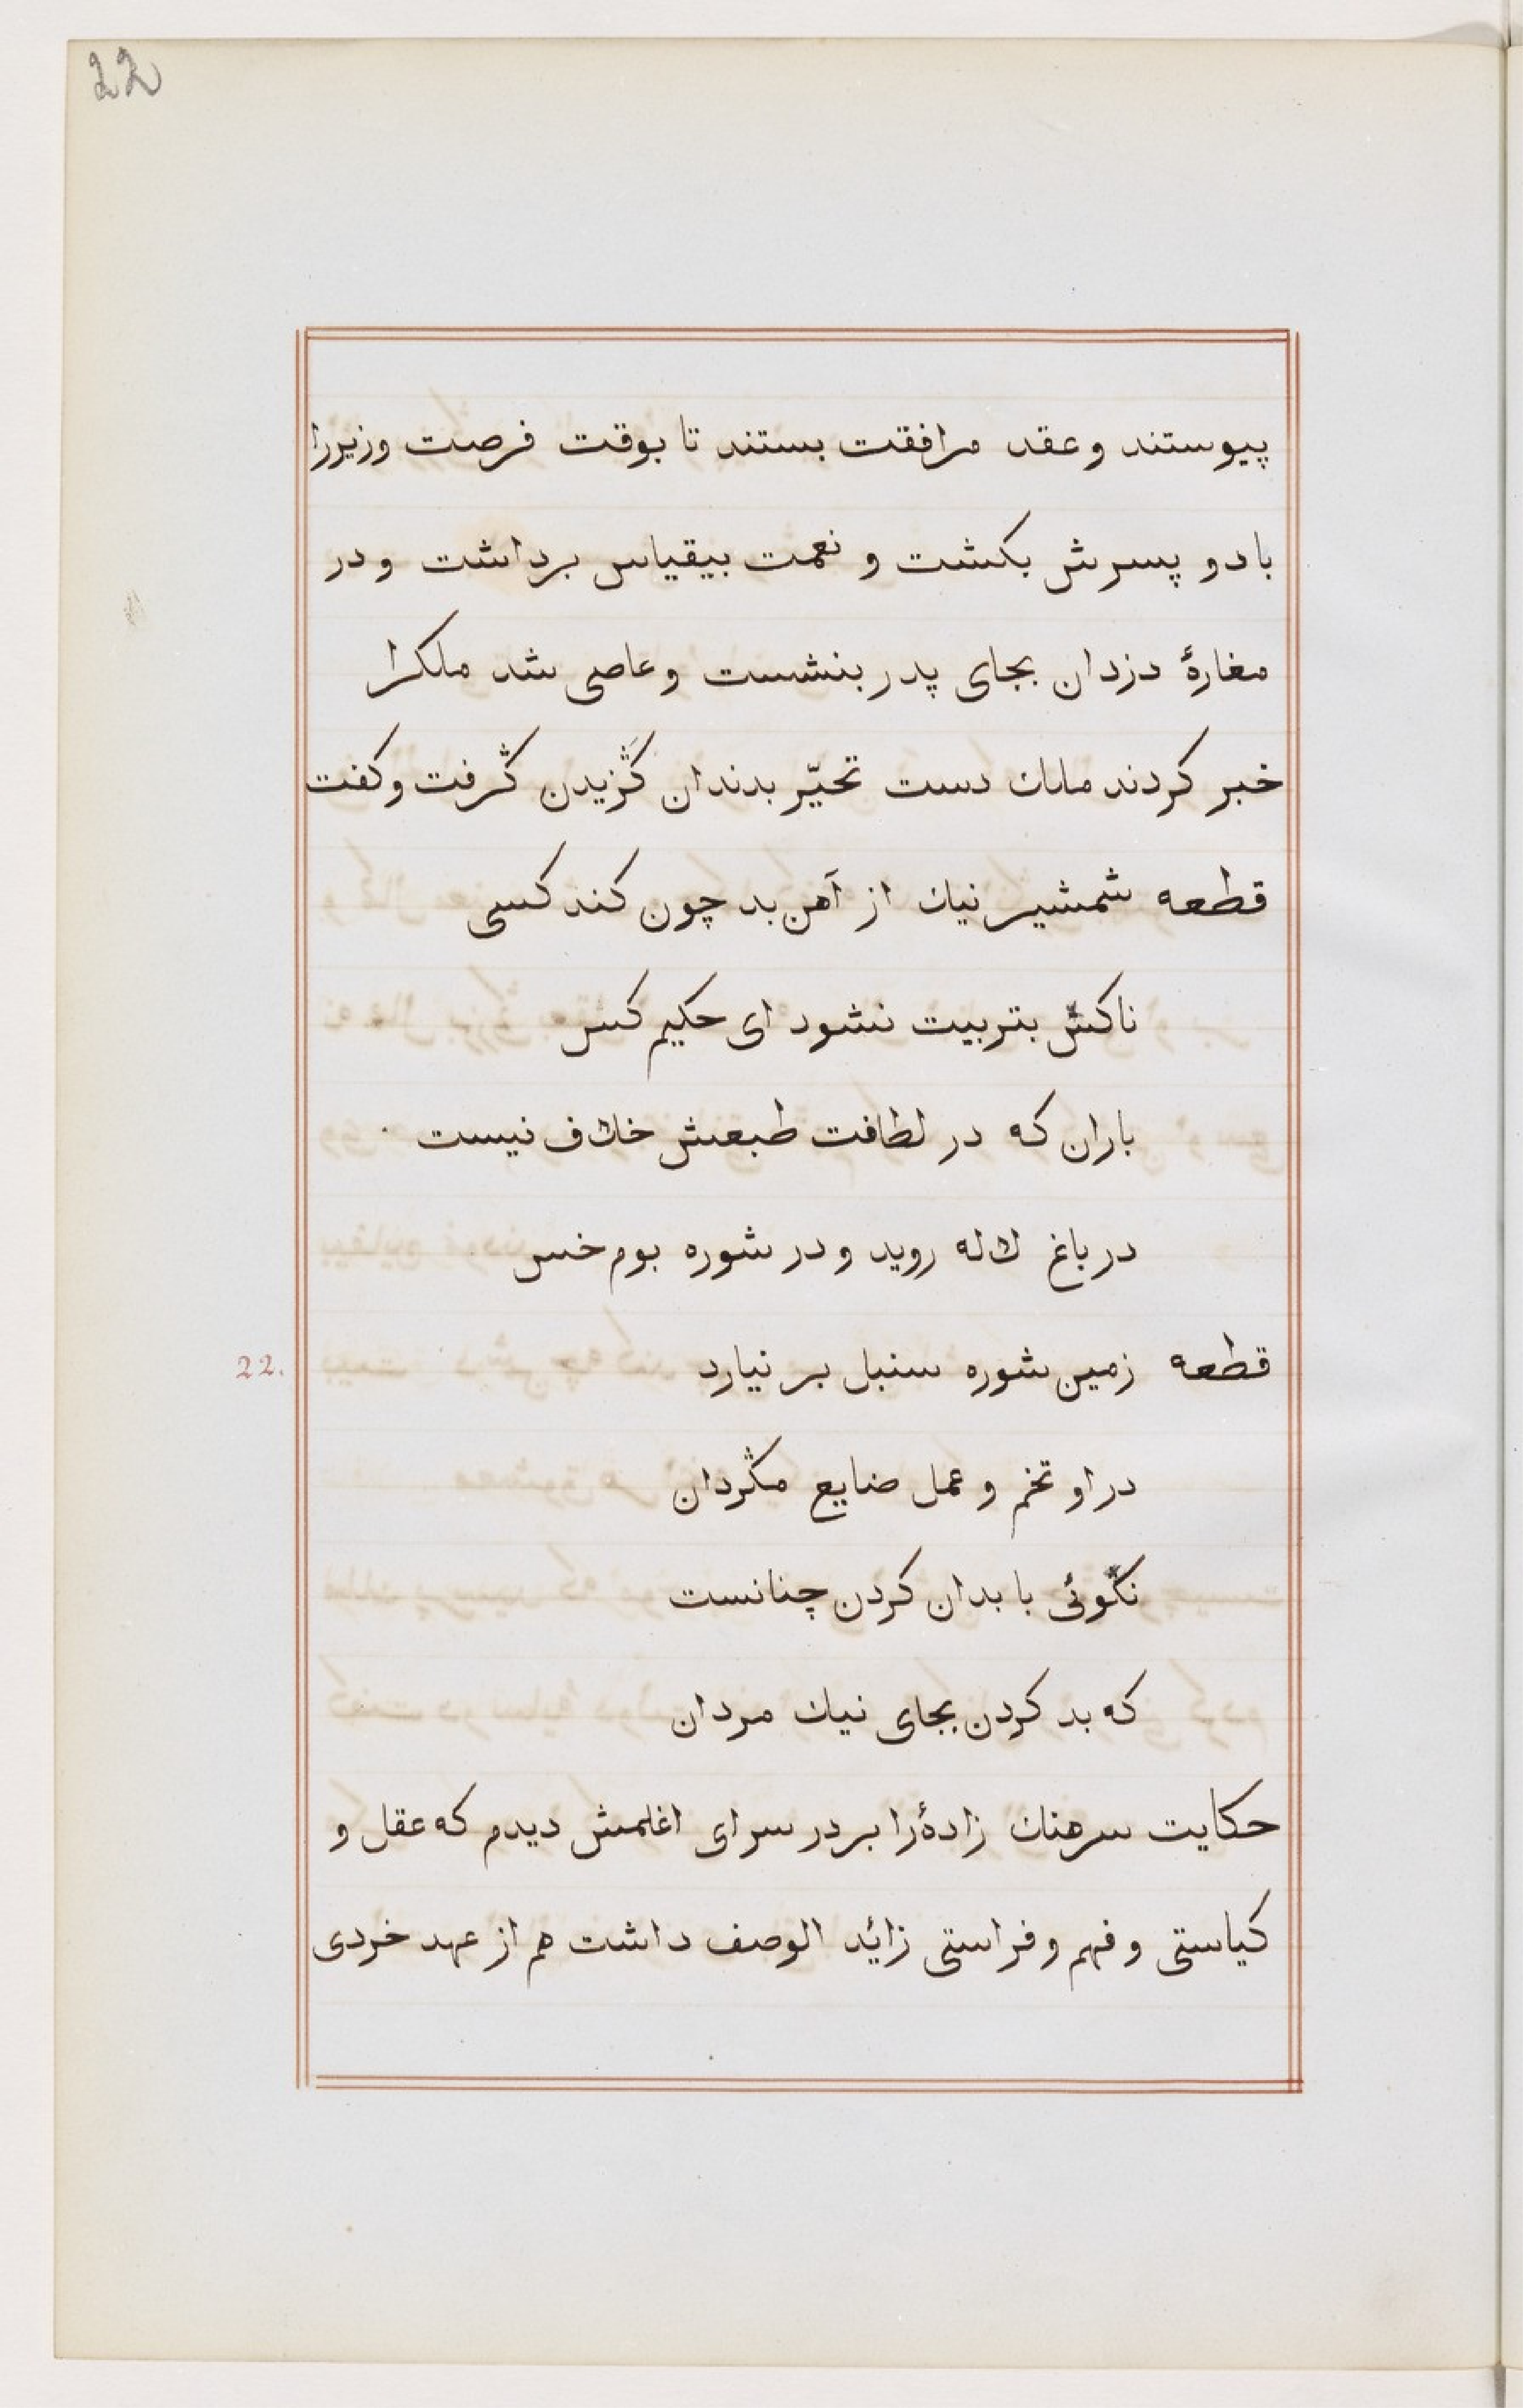 22
پیوستند و عقد مرافقت بستند تا بوقت فرصت وزیررا
با دو پسرش بکشت و نعمت بیقیاس برداشت و در
مغارهٔ دزدان بجای پدر بنشست و عاصی شد ملکرا
خبر کردند ملک دست تحیّر بدندان گزیدن گرفت و کفت
قطعه شمشیر نیک از آهن بد چون کند کسی
ناکس بتربیت نشود ای حکیم کس
باران که در لطافت طبعش خلاف نیست
در باغ لاله روید و در شوره بوم خس
22. قطعه زمین شوره سنبل بر نیارد
در او تخم و عمل ضایع مگردان
نکوئی با بدان کردن چنانست
که بد کردن بجای نیک مردان
حکایت سرهنک زادهٔ را بر در سرای اغلمش دیدم که عقل و
کیاستی و فهم و فراستی زائد الوصف داشت هم از عهد خردی